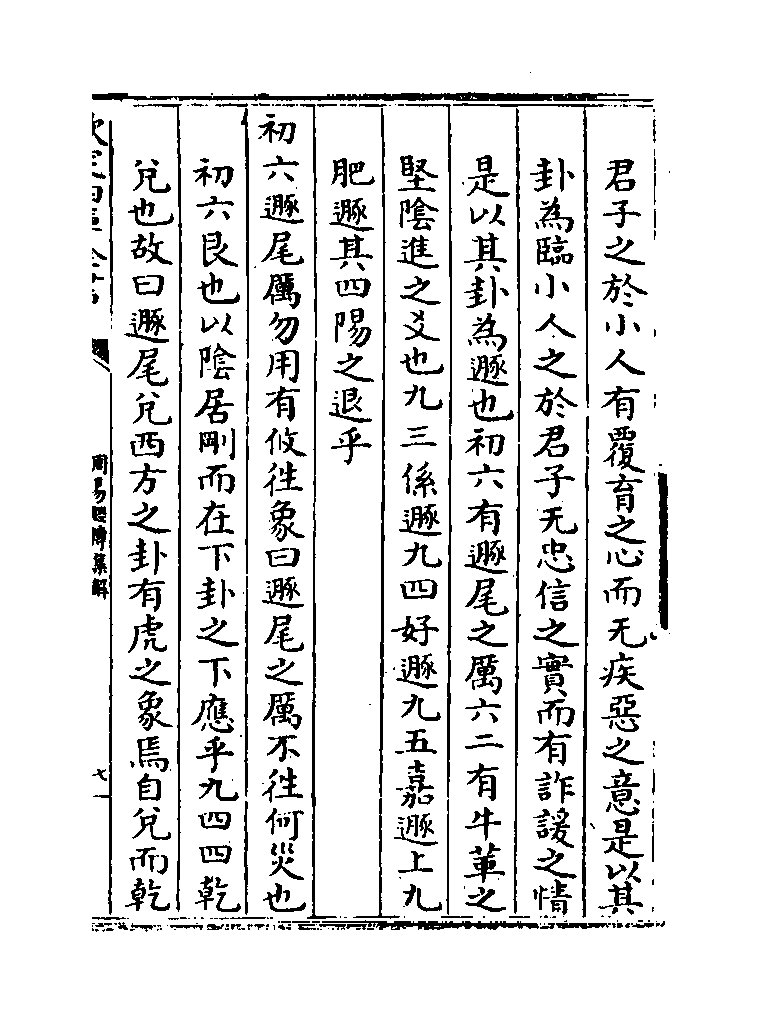 君子之於小人有覆育之心而无疾惡之意是以其
卦為臨小人之於君子无忠信之實而有詐諼之情
是以其卦為遯也初六有遯尾之厲六二有牛革之
堅陰進之爻也九三係遯九四好遯九五嘉遯上九
肥遯其四陽之退乎
初六遯尾厲勿用有攸往象曰遯尾之厲不往何災也
初六艮也以陰居剛而在下卦之下應乎九四四乾
兌也故曰遯尾兌西方之卦有虎之象焉自兌而乾
周易經傳集解